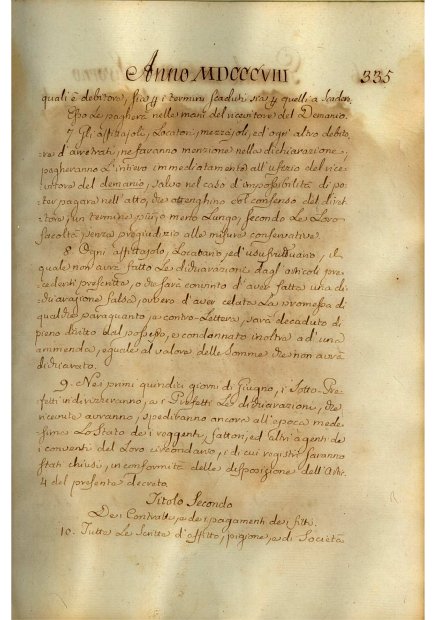 Anno MDCCCVIII 335
quali è debitore, sia p i termini scaduti sia p quelli a scadere.
Esso le pagherà nelle mani del ricevitore del Demanio.
7. Gli affittajoli, Locatarj, mezzajoli, ed'ogni altro debito
re d'arretrati, ne faranno menzione nella dichiarazione,
pagheranno l'intiero immediatamente all'ufizio del rice
vitore del demanio, salvo nel caso d'impossibilità di po
ter pagare nell'atto, che ottenghino col consenso del diret
tore, un termine più, o meno Lungo, secondo Le Loro
facoltà, senza pregiudizio alle misure conservative.
8. Ogni affittajolo, Locatario, ed'usufruttuario, il
quale non avrà fatto Le dichiarazione dagl'articoli pre
cedenti presentita, o che sarà convinto d'aver fatta una di
chiarazione falsa, ovvero d'aver celata La promessa di
qualche paraguanto, o contro-Lettera, sarà decaduto di
pieno diritto dal possesso, e condannato inoltre ad'una
ammenda, eguale al valore delle somme che non avrà
dichiarato.
9. Nei primi quindici giorni di Giugno, i Sotto-Pre
fetti indirizzeranno, ai Prefetti Le dichiarazione, che
ricevute avranno, e spediranno ancora all'epoca mede
sima Lo Stato dei reggenti, fattori, ed altri agenti de
i conventi del Loro circondario, i di cui registri saranno
stati chiusi, in conformità delle disposizione dell'Art.
4 del presente decreto.
Titolo Secondo
Dei Contratti, e dei pagamenti dei fitti.
10. Tutte Le Scritte d'affitto, pigione, e di Società